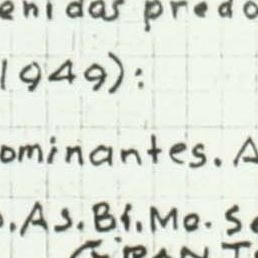 enidas predo
1949):
ominantes. A
o. As. Bi. Mo. Se
GRANI